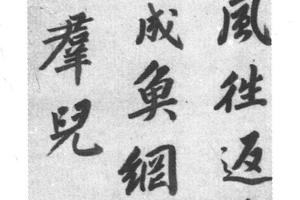 風往返
成魚網
羣兒